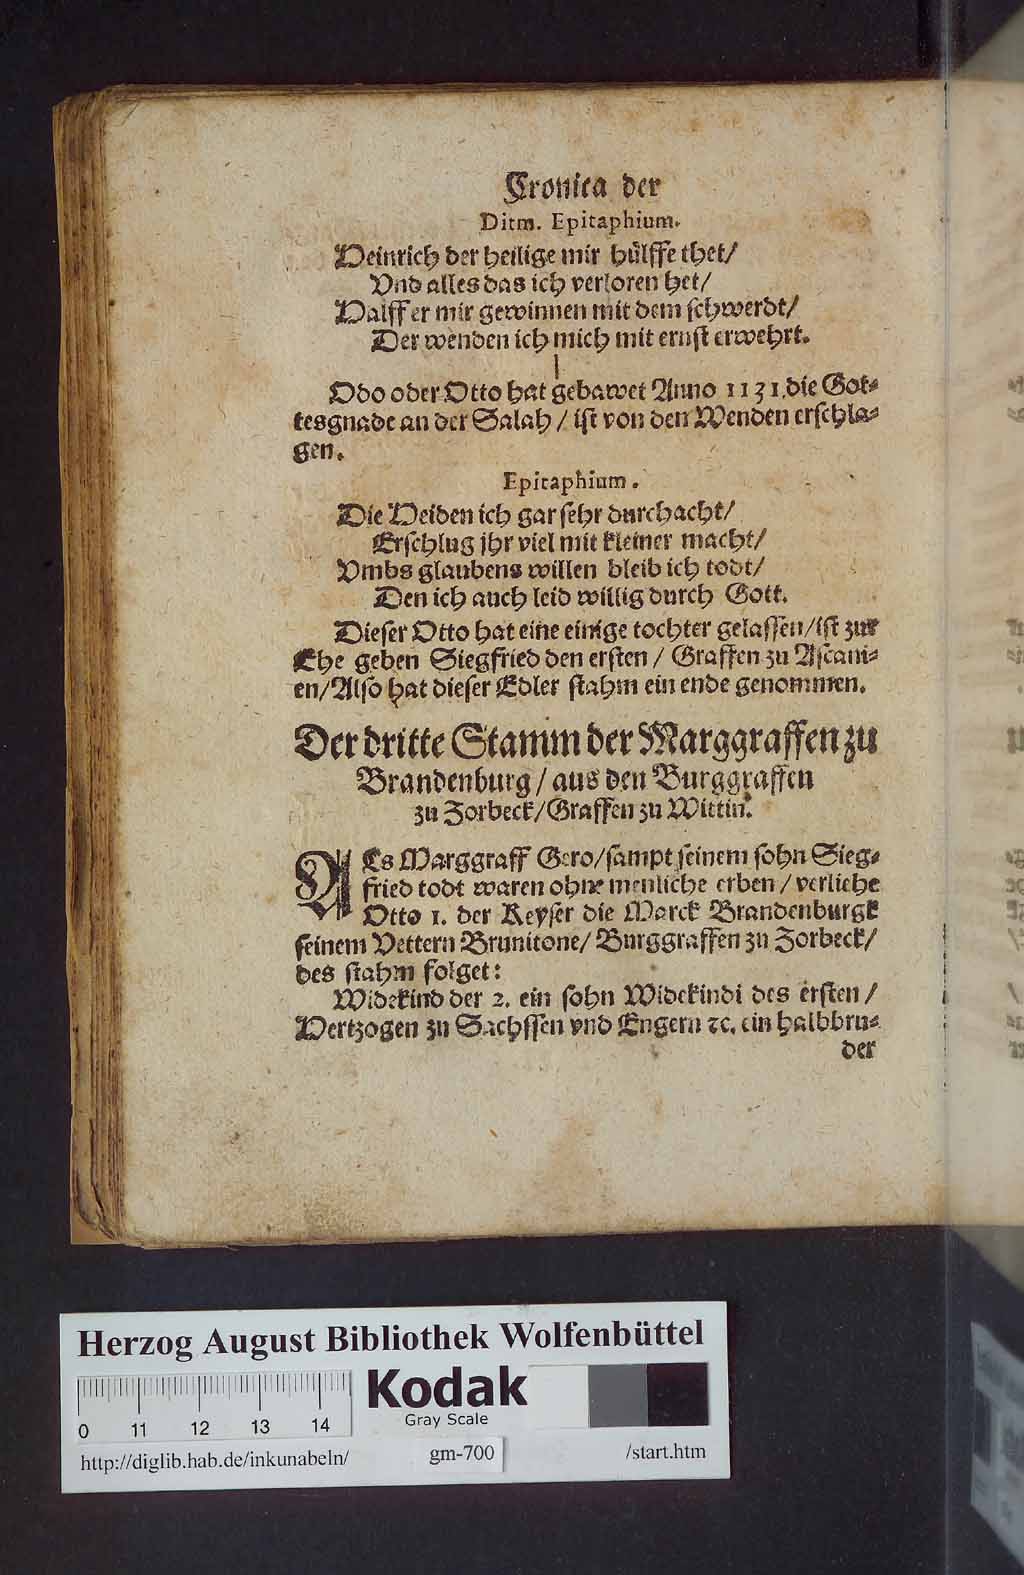 Cronica der
Ditm. Epitaphium.
Heinrich der heilige mir hülffe thet/
Vnd alles das ich verloren het/
Halff er mir gewinnen mit dem schwerdt/
Der wenden ich mich mit ernst erwehrt.
Odo oder Otto hat gebawet Anno 1131. die Got-
tesgnade an der Salah / ist von den Wenden erschla-
gen.
Epitaphium.
Die Heiden ich gar sehr durchacht/
Erschlug jhr viel mit kleiner macht/
Vmbs glaubens willen bleib ich todt/
Den ich auch leid willig durch Gott.
Dieser Otto hat eine einige tochter gelassen/ist zur
Ehe geben Siegfried den ersten / Graffen zu Ascani-
en/Also hat dieser Edler stahm ein ende genommen.
Der dritte Stamm der Marggraffen zu
Brandenburg / aus den Burggraffen
zu Zorbeck/Graffen zu Wittin.
ALs Marggraff Gero/sampt seinem sohn Sieg-
fried todt waren ohne menliche erben / verliehe
Otto 1. der Keyser die Marck Brandenburgk
seinem Vettern Brunitone/ Burggraffen zu Zorbeck/
des stahm folget:
Widekind der 2. ein sohn Widekindi des ersten /
Hertzogen zu Sachssen vnd Engern ꝛc. ein halbbru-
der
Herzog August Bibliothek Wolfenbüttel
0 11 12 13 14
Kodak
Gray Scale
http://diglib.hab.de/inkunabeln/ gm-700 /start.htm